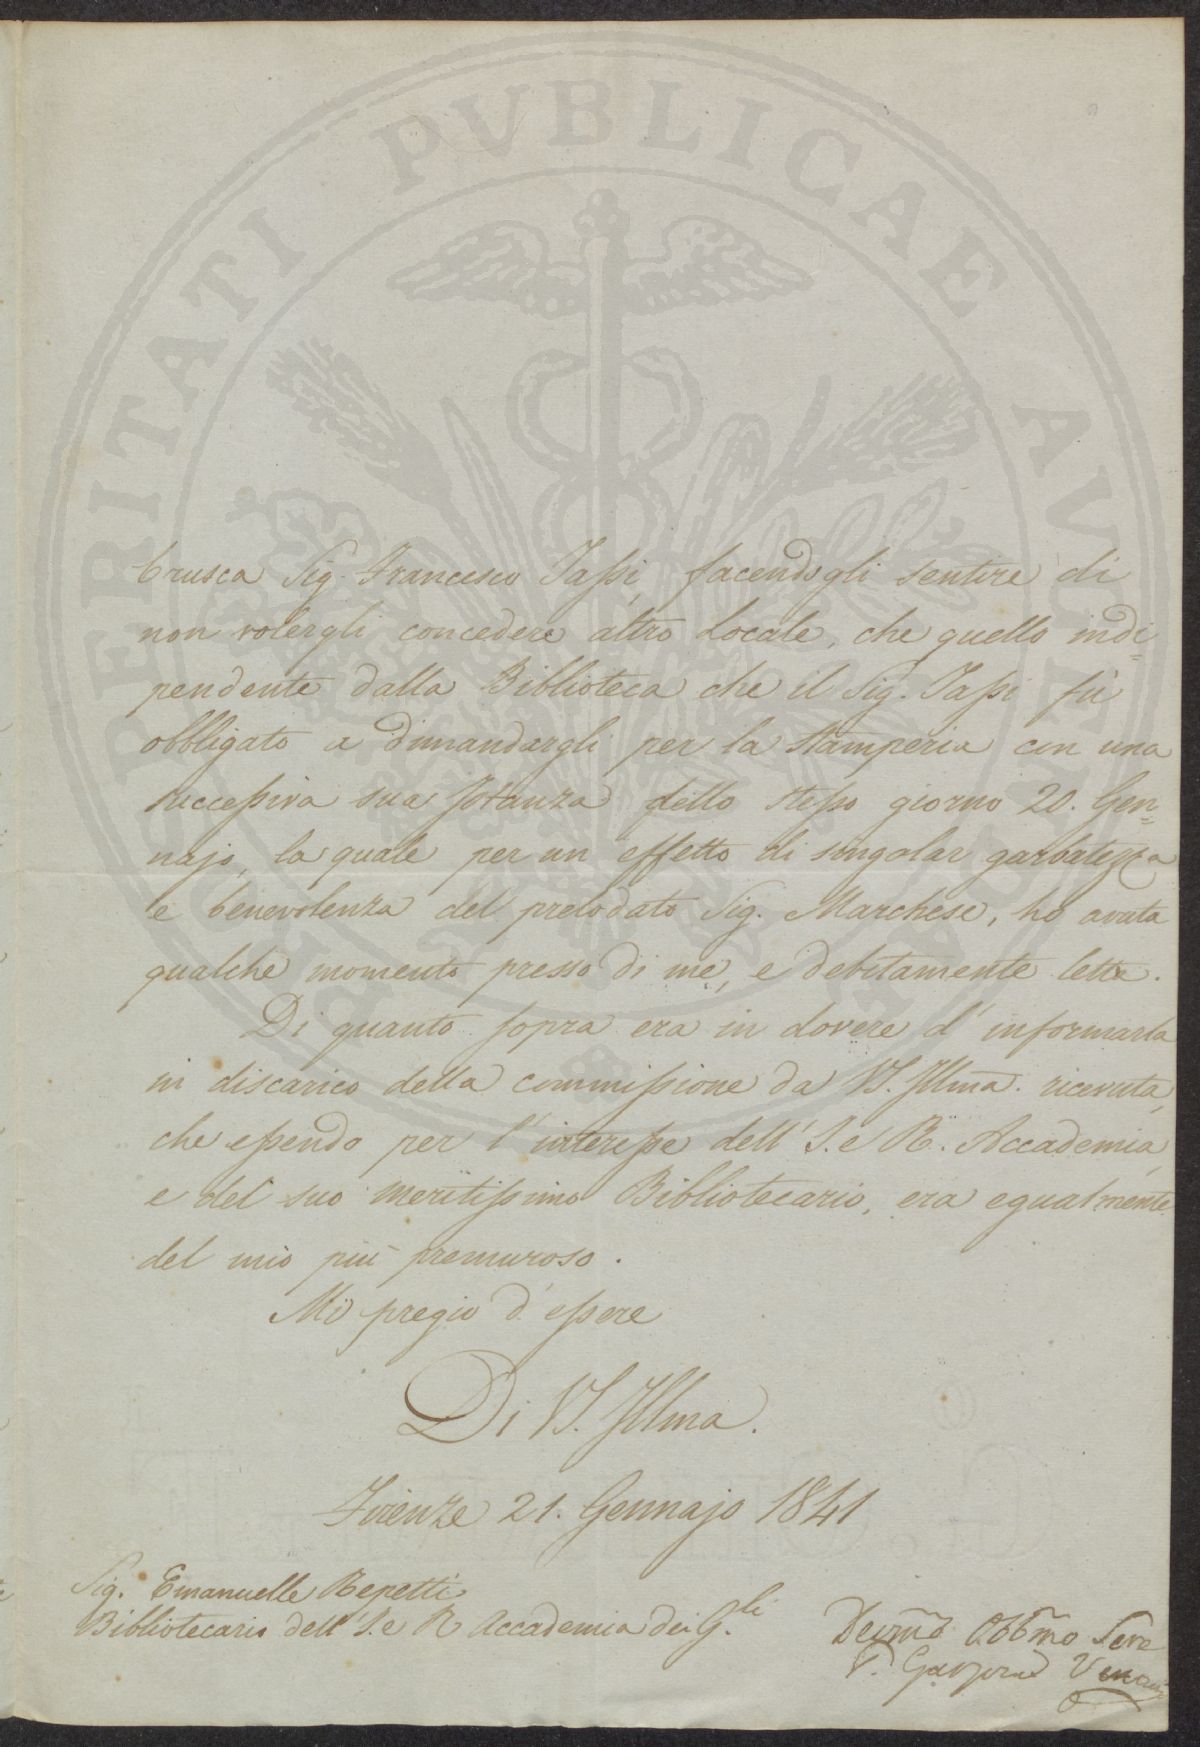 PROSPERITATI PUBLICAE AUGENDAE
Crusca Sig. Francesco Tassi, facendogli sentire di
non volergli concedere altro Locale, che quello indi=
pendente dalla Biblioteca che il Sig. Tassi fù
obbligato a dimandargli per la Stamperia con una
successiva sua Istanza dello stesso giorno 20. Gen=
najo, la quale per un effetto di singolar garbatezza
e benevolenza del prelodato Sig. Marchese, ho avuta
qualche momento presso di me, e debitamente letta.
Di quanto sopra era in dovere d' informarla
in discarico della commissione da VS. Illma. ricevuta,
che essendo per l' interesse dell' I. e R. Accademia,
e del suo meritissimo Bibliotecario, era egualmente
del mio più premuroso.
Mi pregio d' essere
Di VS. Illma.
Firenze 21. Gennajo 1841
Sig. Emanuelle Repetti
Bibliotecario dell' I. e R. Accademia dei G.li
Devmo Obbmo Serv